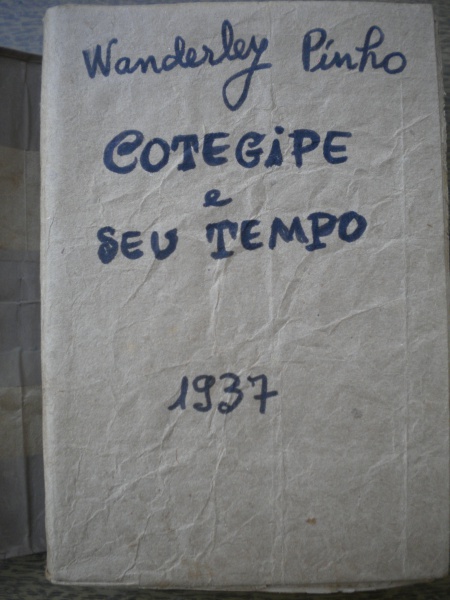 Wanderley Pinho
COTEGiPE
e
SEU TEMPO
1937